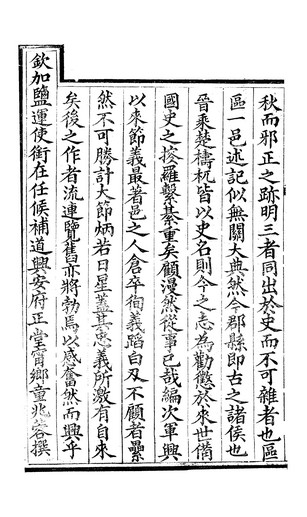 秋而邪正之跡明三者同出於史而不可雜者也區
區一邑述記似無關大典然今郡縣即古之諸侯也
晉乘楚檮杌皆以史名則今之志為勸懲於來世備
國史之捘羅繫綦重矣顧漫然從事已哉編次軍興
以來節義最著邑之人倉卒徇義蹈白刃不顧者纍
然不可勝計大節炳若日星蓋其忠義所激有自來
矣後之作者流連覽舊亦將勃焉以感奮然而興乎
欽加鹽運使銜在任候補道興安府正堂甯鄉童兆蓉撰